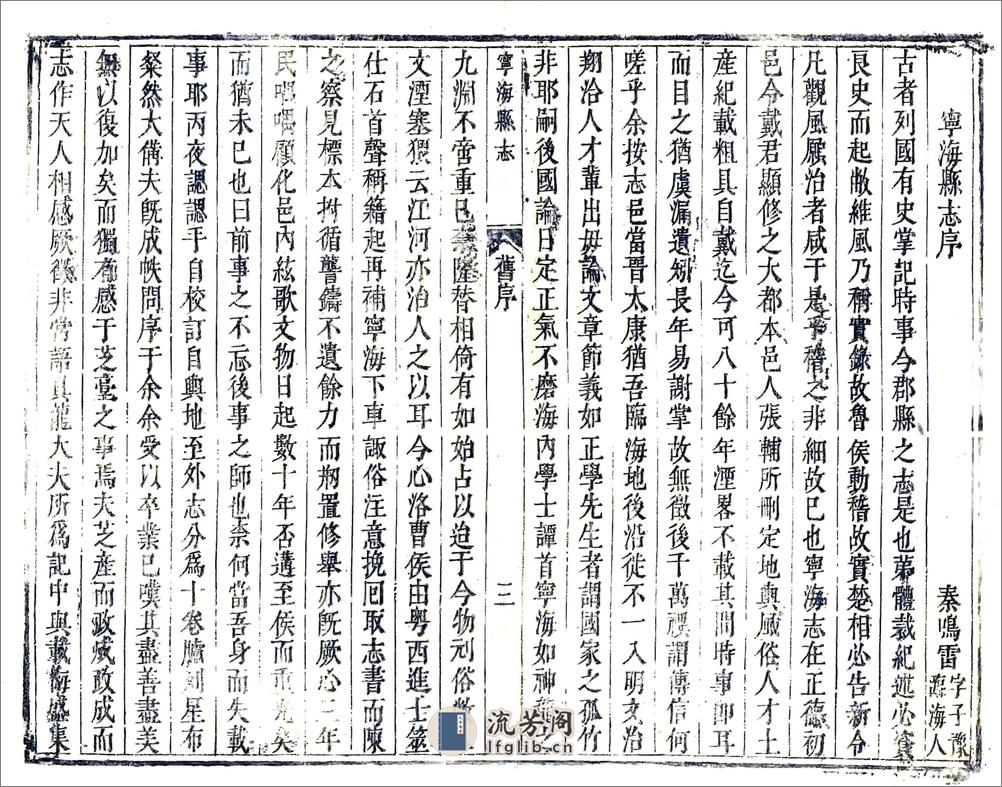 寧海縣志序
秦鳴雷字子豫臨海人
古者列國有史掌記時事今郡縣之志是也苐體裁紀述必資
良史而起敝維風乃稱實錄故魯侯動稽故實楚相必告新令
凡觀風願治者咸于是乎稽之非細故已也寧海志在正德初
邑令戴君顯修之大都本邑人張輔所刪定地輿風俗人才土
產紀載粗具自戴迄今可八十餘年湮畧不載其間時事即耳
而目之猶虞漏遺矧長年易謝掌故無徵後千萬禩謂傳信何
嗟乎余按志邑當晉太康猶吾臨海地後沿徙不一入明文治
翔洽人才輩出毋論文章節義如正學先生者謂國家之孤竹
非耶嗣後國論日定正氣不磨海內學士譚首寧海如神龍之
寧海縣志
舊序
三
九淵不啻重已秦隆替相倚有如始占以迨于今物刓俗敝
文湮塞猥云江河亦治人之以耳今心洛曹侯由粤西進士筮
仕石首聲稱籍起再補寧海下車諏俗注意挽囘取志書而陳
之察見標本拊循讋鑄不遺餘力而剏置修舉亦旣厥心二年
民喁喁願化邑內絃歌文物日起數十年否遘至侯而重光矣
而猶未已也曰前事之不忘後事之師也柰何當吾身而失載
事耶丙夜認認手自校訂自輿地至外志分爲十卷臚列星布
粲然大備夫旣成帙問序于余余受以卒業已嘆其盡善盡美
無以復加矣而獨有感于芝臺之事焉夫芝產而政成政成而
志作天人相感厥徵非常語具龍大夫所爲記中與載梅盛集
流芳阁
lfglib.cn